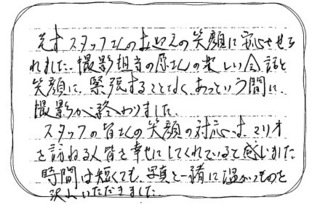 まず スタッフさんのお迎えの笑顔に安心させら
れました。撮影担当の原さんの楽しい会話と
笑顔に、緊張することなく、あっという間に
撮影が終わりました。
スタッフの皆さんの笑顔の対応は、マリオ
を訪ねる人皆を幸せにしてくれていると感じました
時間は短くても、写真と一緒に温かいものを
沢山いただきました。